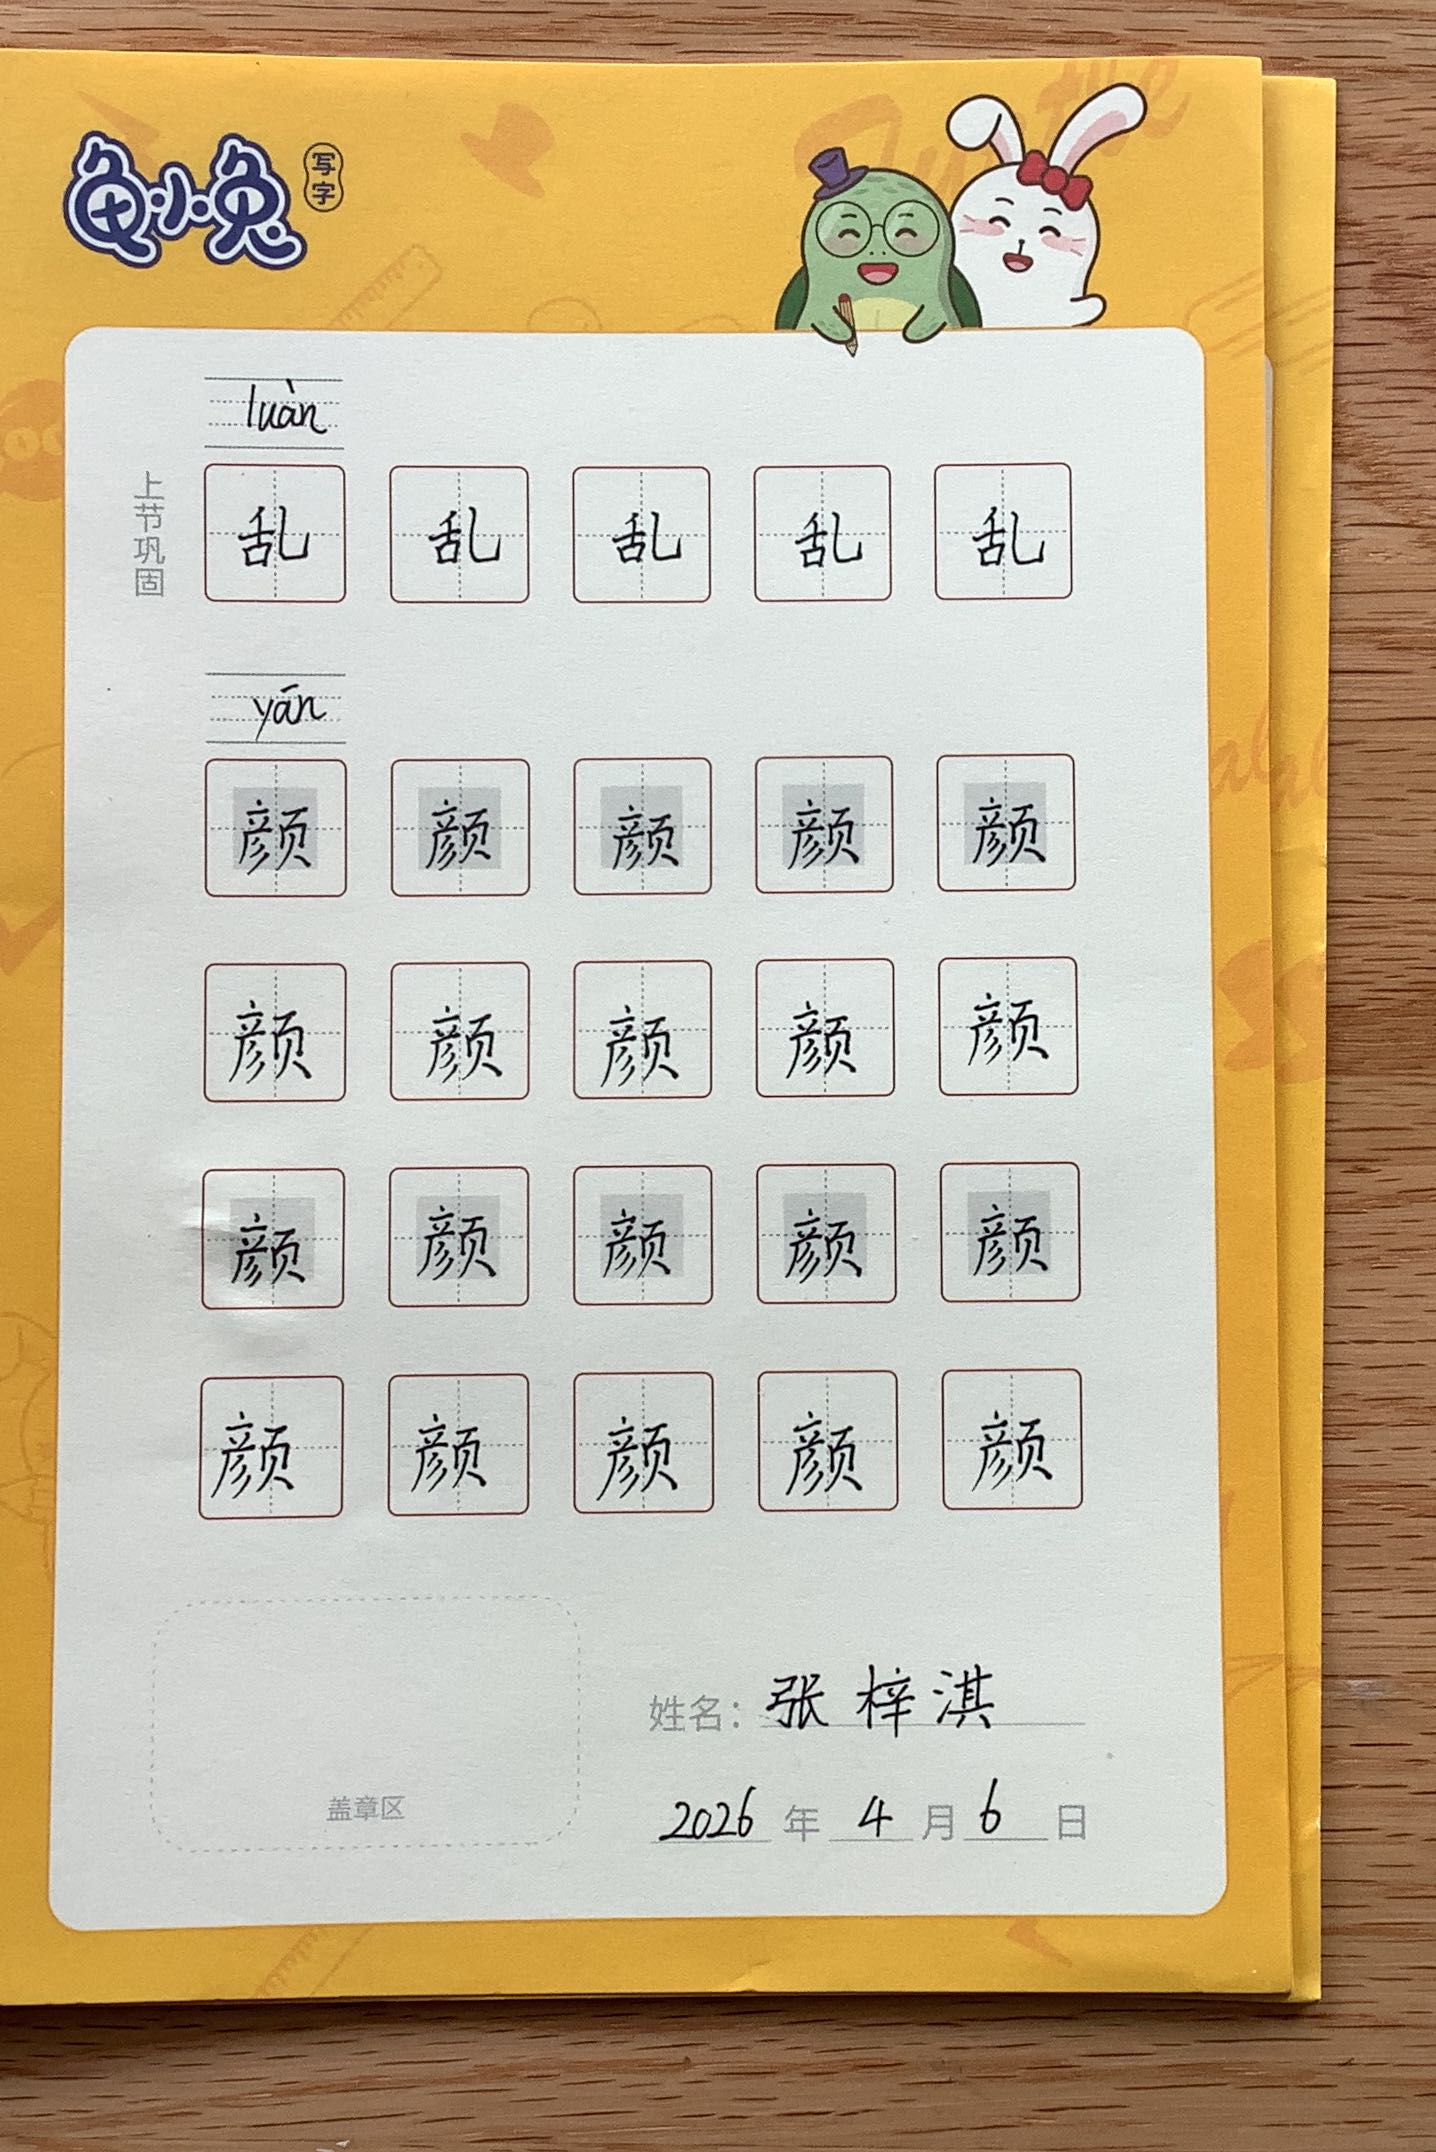 龟小兔 写字
luàn
上节巩固
乱 乱 乱 乱 乱
yán
颜 颜 颜 颜 颜
颜 颜 颜 颜 颜
颜 颜 颜 颜 颜
颜 颜 颜 颜 颜
姓名：张梓淇
盖章区
2026年4月6日